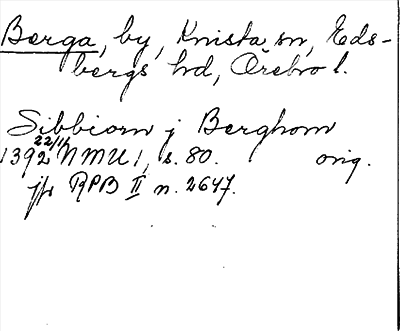 Berga, by, Knista sn, Eds-
bergs hd, Örebro l.
Sibbiorn j Berghom
1392 22/11 NMU 1, s. 80. orig.
jfr RPB II n. 2647.